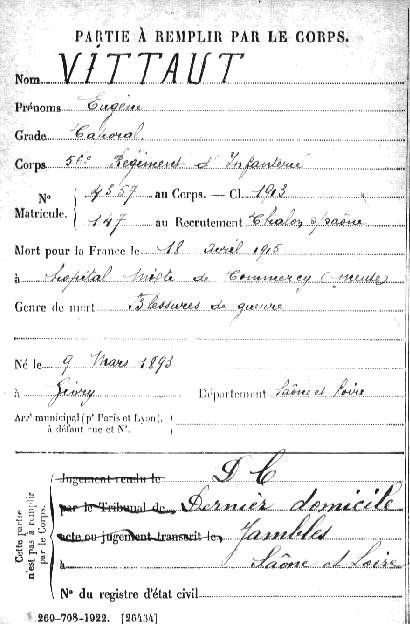 PARTIE À REMPLIR PAR LE CORPS.
Nom VITTAUT
Prénoms Eugène
Grade Caporal
Corps 56e Régiment d'Infanterie
N° Matricule. 4357 au Corps. — Cl. 1913
147 au Recrutement Chalon s/saône
Mort pour la France le 18 avril 1915
à hopital mixte de Commercy (meuse)
Genre de mort Blessures de guerre
Né le 9 Mars 1893
à Givry Département Saône et Loire
Arrt municipal (pr Paris et Lyon),
à défaut rue et N°.
Cette partie n'est pas à remplir par le Corps.
Jugement rendu le D C
par le Tribunal de Dernier domicile
acte ou jugement transcrit le Jambles
à Saône et Loire
N° du registre d'état civil
260-708-1922. [26434]